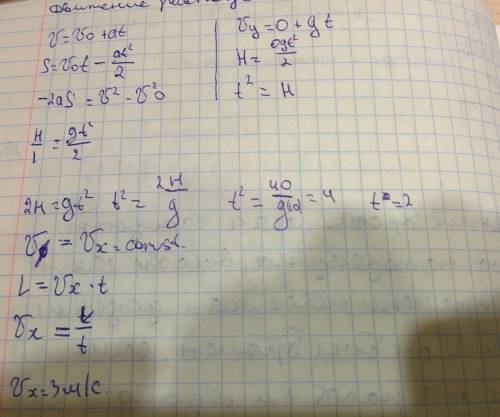 Движение
v = v₀ + at
S = v₀t − at²/2
−2aS = v² − v²₀
v_y = 0 + gt
H = 0gt²/2
t² = H
H/1 = gt²/2
2H = gt² t² = 2H/g t² = 40/g = 4 t = 2
v = v_x = const.
L = v_x · t
v_x = L/t
v_x = 3 м/с.